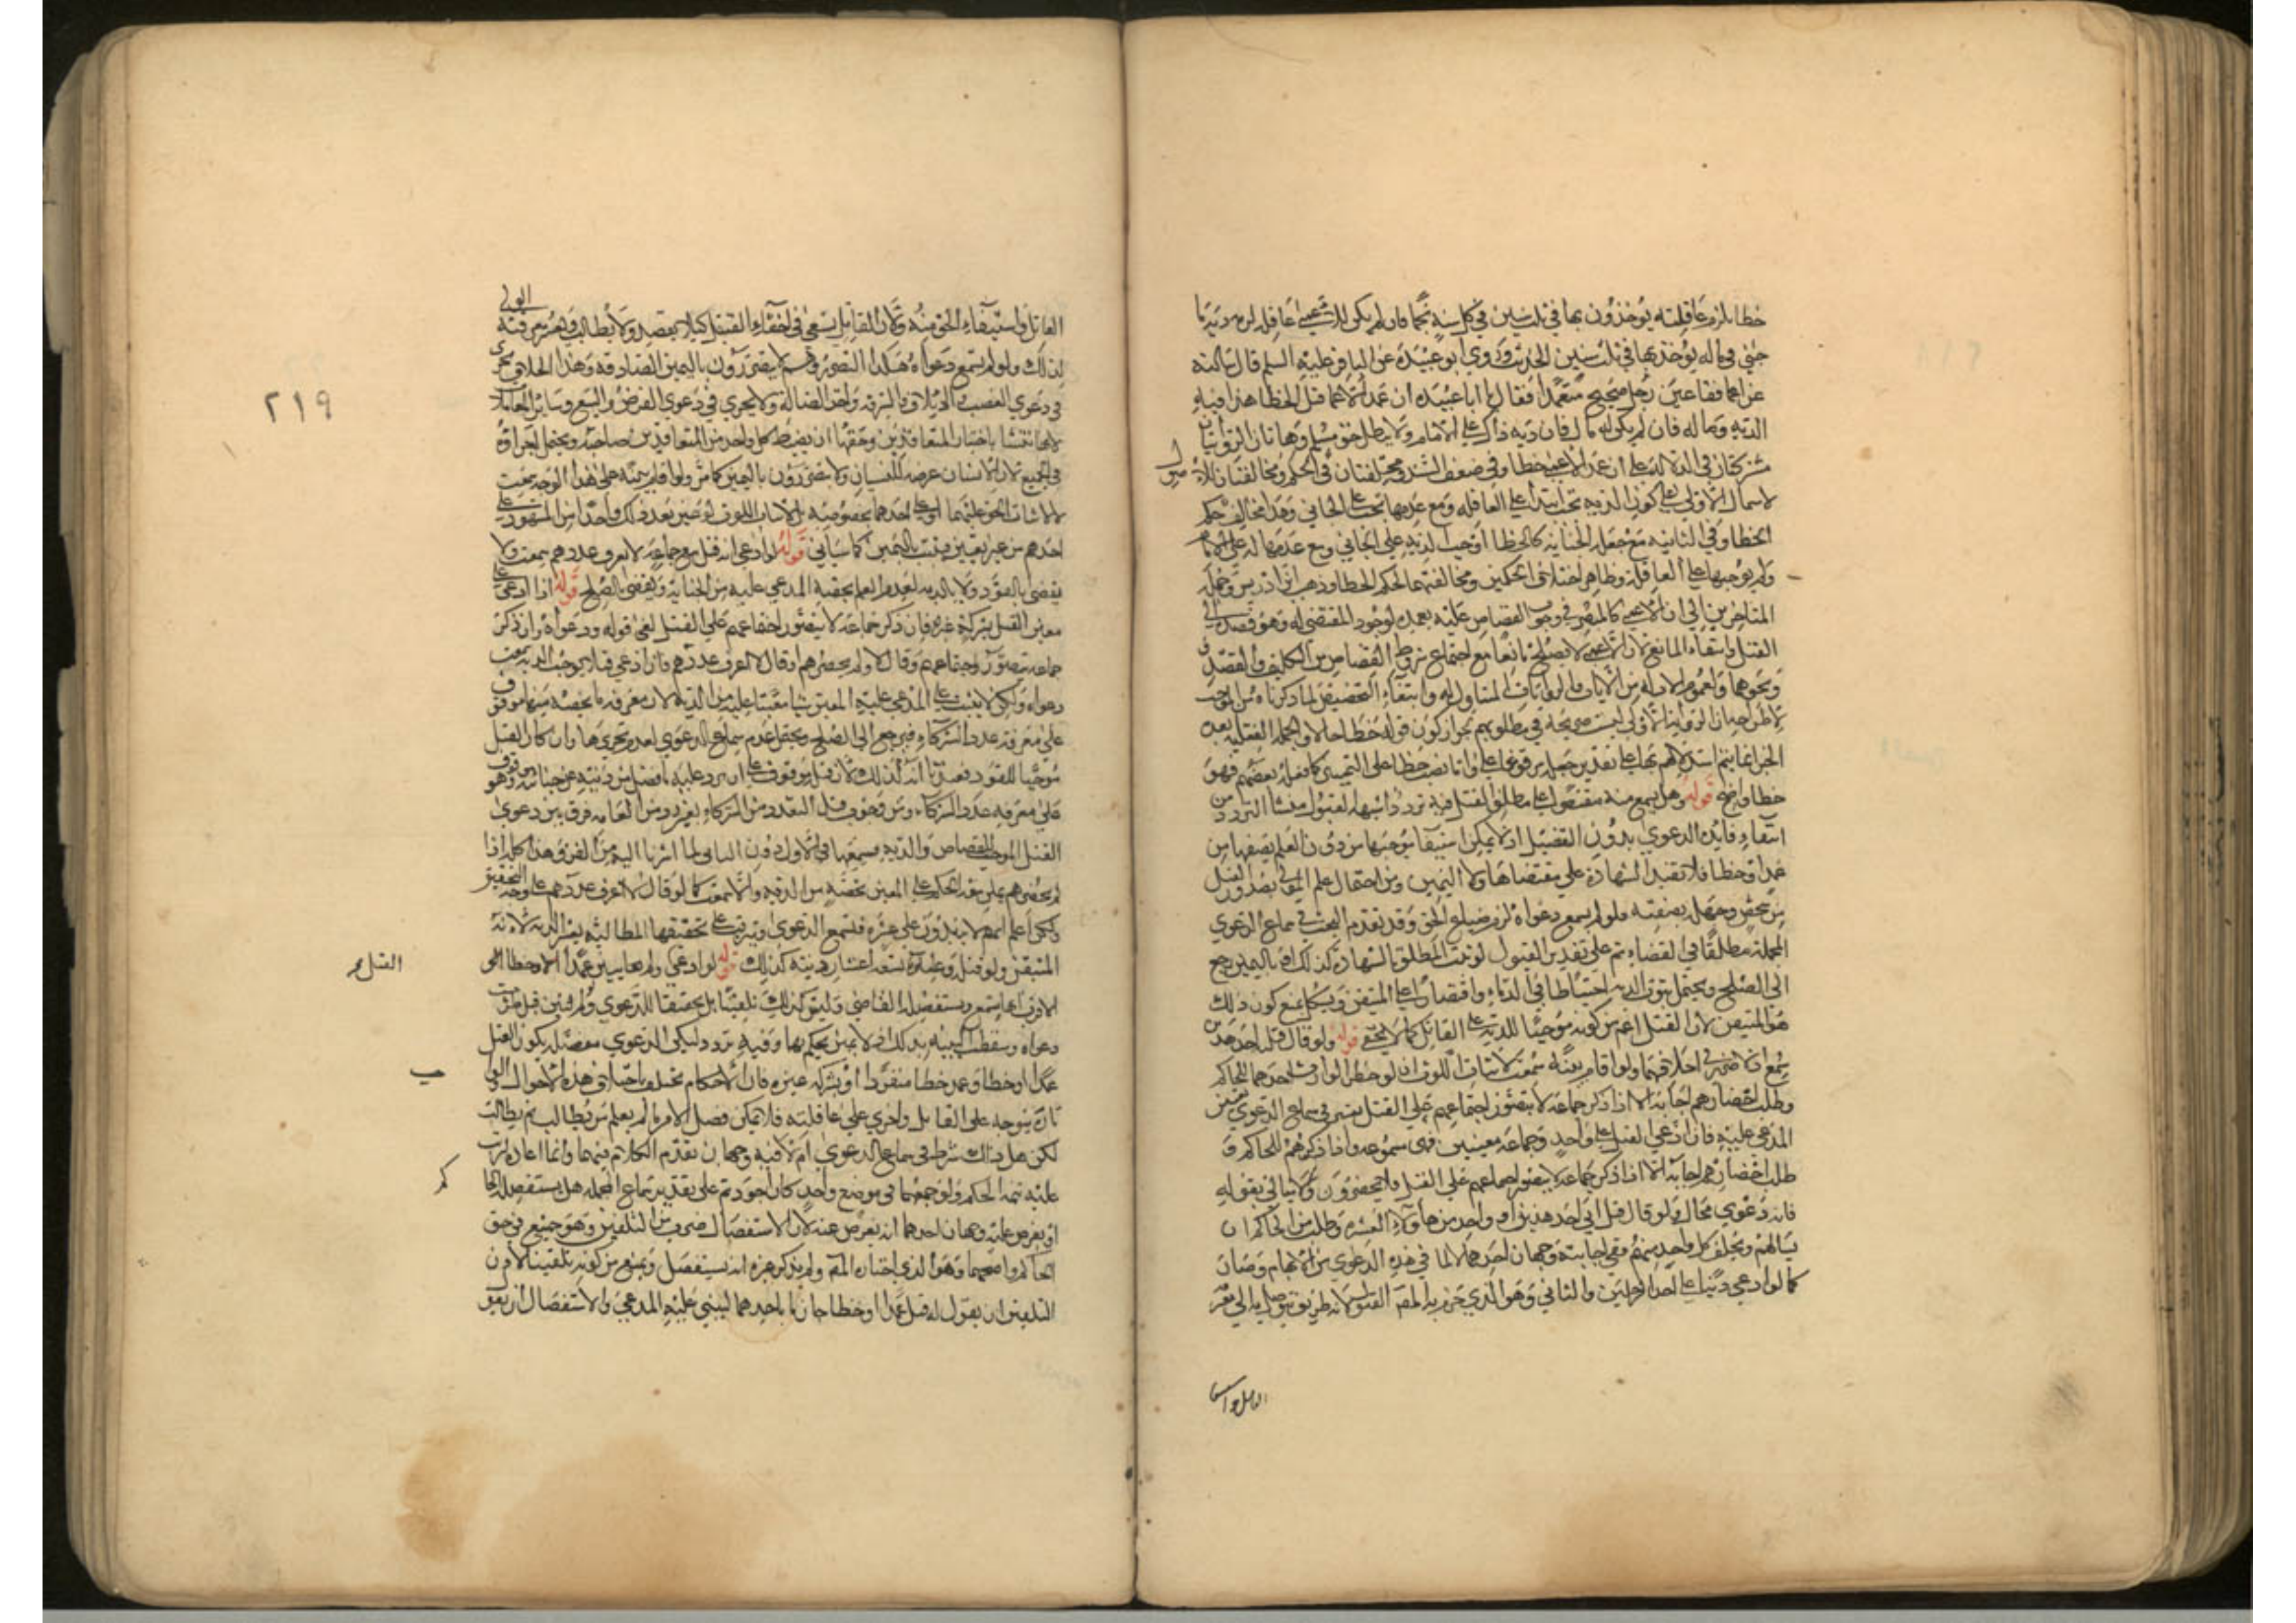 خطا يلزم عاقلته يؤخذون بها في ثلث سنين في كل سنة نجما فان لم يكن للاعمى عاقلة لزمه دية ما
جنى في ماله يؤخذ بها في ثلث سنين الحديث وروى ابو عبيدة عن الباقر عليه السلم قال سالته
عن اعمى فقا عين رجل صحيح متعمدا فقال يا ابا عبيده ان عمد الاعمى مثل الخطا هذا فيه
الدية من ماله فان لم يكن له مال فان دية ذلك على الامام ولا يبطل حق مسلم وهاتان الروايتان
مشتركتان في الدلالة على ان عمد الاعمى خطا وفي ضعف السند ومختلفتان في الحكم ومخالفتان للاصول
لاشتمال الاولى على كون الدية تجب ابتداء على العاقلة ومع عدمها تجب على الجاني وهذا مخالف لحكم
الخطا وفي الثانية مع جعله الجناية كالخطا اوجب الدية على الجاني ومع عدمها له على الامام
ولم يوجبها على العاقلة وظاهر اختلاف الحكمين ومخالفتهما لحكم الخطا وذهب ابن ادريس وجملة
المتاخرين الى ان الاعمى كالمبصر في وجوب القصاص عليه بعمده لوجود المقتضي له وهو قصده الى
القتل وانتفاء المانع لان الاعمى لا يصلح مانعا مع اجتماع شروط القصاص من التكليف والقصد
ونحوهما ولعموم الادلة من الايات والروايات المتناول له وانتفاء التخصيص لما ذكرناه من الموجب
لاطراحهما ان الرواية الاولى ليست صريحة في مطلوبهم لجواز كون قوله خطا حالا والجملة الفعلية بعده
الخبر انما يتم استدلالهم بها على تقدير جعله مرفوعا على وانما نصب خطا على التمييز كما فعله بعضهم فهو
خطا واضح قوله وهل يسمع منه مقتصرا على مطلق القتل فيه تردد اشبهه القبول منشا التردد من
انتفاء فائدة الدعوى بدون التفصيل اذ لا يمكن استيفاء موجبها من دون العلم بصفتها من
عمد او خطا فلا تقبل الشهادة على مقتضاها ولا اليمين ومن احتمال علم الولي بصدور القتل
من شخص وجهله بصفته فلو لم يسمع دعواه لزم ضياع الحق وقد تقدم البحث في سماع الدعوى
المجملة مطلقا في القضاء ثم على تقدير القبول لو ثبت المطلق بالشهادة كذلك او باليمين رجع
الى الصلح ويحتمل ثبوت الدية احتياطا في الدماء واقتصارا على المتيقن ويشكل بمنع كون ذلك
هو المتيقن لان القتل اعم من كونه موجبا للدية على القاتل كما لا يخفى قوله ولو قال قتله احد هذين
سمع اذ لا ضرر في احلافهما ولو اقام بينة سمعت لاثبات اللوث ان لو خص الوارث احدهما للحاكم
وطلب احضارهم اجابه الا اذا ذكر جماعة لا يتصور اجتماعهم على القتل يعتبر في سماع الدعوى تعيين
المدعى عليه فان ادعى القتل على واحد وجماعة معينين فهي مسموعة واذا ذكرهم للحاكم و
طلب احضارهم اجابه الا اذا ذكر جماعة لا يتصور اجتماعهم على القتل فلا يحضرون ولا يبالي بقوله
فانه دعوى محال ولو قال قتل ابي احد هذين او واحد من هاؤلاء العشرة وطلب من الحاكم ان
يسالهم ويحلف كل واحد منهم ففي اجابته وجهان احدهما لا لما في هذه الدعوى من الابهام وصار
كما لو ادعى دينا على احد الرجلين والثاني وهو الذي جزم به المصنف القبول لانه طريق يتوصل به الى معرفة
القاتل واستيفاء الحق منه وكان القاتل يسعى في اخفاء القتل كيلا يقصد ولا يطالب ويعسر معرفته على الولي
لذلك ولو لم تسمع دعواه هكذا لتضرر وهم لا يتضررون باليمين الصادقة وهذا الخلاف يجري
في دعوى الغصب والاتلاف والسرقة واخذ الضالة ولا يجري في دعوى القرض والبيع وسائر المعاملات
لانها تنشا باختيار المتعاقدين وحقها ان يضبط كل واحد من المتعاقدين صاحبه ويحتمل اجراؤه
في الجميع لان الانسان عرضة للنسيان ولا يتضررون باليمين كما مر ولو اقام بينة على هذا الوجه سمعت
لا لاثبات الحق عليهما او على احدهما بخصوصيته بل لاثبات اللوث لو عين بعد ذلك واحدا من المشهود على
احدهم من غير تعيين فيثبت باليمين كما سياتي قوله لو ادعى انه قتل مع جماعة لا يعرف عددهم سمعت ولا
يقضى بالقود ولا بالدية لعدم العلم بحصة المدعى عليه من الجناية ويقضى بالصلح قوله اذا ادعى على
معين القتل بشركة غيره فان ذكر جماعة لا يتصور اجتماعهم على القتل لغى قوله ودعواه وان ذكر
جماعة يتصور اجتماعهم وقال ولم يحصرهم او قال لا اعرف عددهم فان ادعى قتلا يوجب الدية سمعت
دعواه ولكن لا يثبت على المدعى عليه المعين شيئا معينا عليه من الدية لان معرفة ما يخصه منها موقوف
على معرفة عدد الشركاء فيرجع الى الصلح ويحتمل عدم سماع الدعوى لعدم تحريرها وان كان القتل
موجبا للقود فعندنا انه كذلك لان قتله موقوف على ان يرد عليه ما فضل من ديته عن جنايته وهو موقوف
على معرفة عدد الشركاء ومن وجوب قتل المتعدد من الشركاء بغير رد من العامة فرق بين دعوى
القتل الموجب للقصاص والدية وسمعها في الاول دون الثاني لما اشرنا اليه من الفرق وهذا كله اذا
لم يحصرهم على بعد الحكم على المعين بحصته من الدية والا سمعت كما لو قال لا اعرف عددهم على وجه التحقيق
ولكن اعلم انهم لا يزيدون على عشرة فتسمع الدعوى ويترتب على تحقيقها المطالبة بعشر الدية لانه
المتيقن ولو قتله وعشرة تسعة اعشار ديته كذلك قوله لو ادعى ولم يعين عمدا او خطا
الاقرب انها تسمع ويستفصله القاضي وليس كذلك تلقينا بل تحقيقا للدعوى ولو لم يبين قيل طرحت
دعواه وسقطت البينة بذلك اذ لا يمكن الحكم بها وفيه تردد لتكن الدعوى مفصلة بكون القتل
عمدا او خطا وعمد خطا منفردا او بشركة غيره فان الاحكام تختلف باختلاف هذه الاحوال والواجب
تارة يتوجه على القاتل واخرى على عاقلته فلا يمكن فصل الامر ما لم يعلم من يطالب وبم يطالب
لكن هل ذلك شرط في سماع الدعوى ام لا فيه وجهان تقدم الكلام فيهما وانما اعاده ليرتب
عليه تتمة الحكم ولو جمعهما في موضع واحد كان اجود ثم على تقدير سماع المجملة هل يستفصله الحاكم
او يعرض عنه وجهان احدهما انه يعرض عنه لان الاستفصال ضرب من التلقين وهو ممتنع في حق
الحاكم واصحهما وهو الذي اختاره المصنف ولم يذكر غيره انه يستفصل ويمنع من كونه تلقينا لان
التلقين ان يقول له قتل عمدا او خطا جازما باحدهما ليبني عليه المدعي والاستفصال ان يقول
٢١٩
القتل